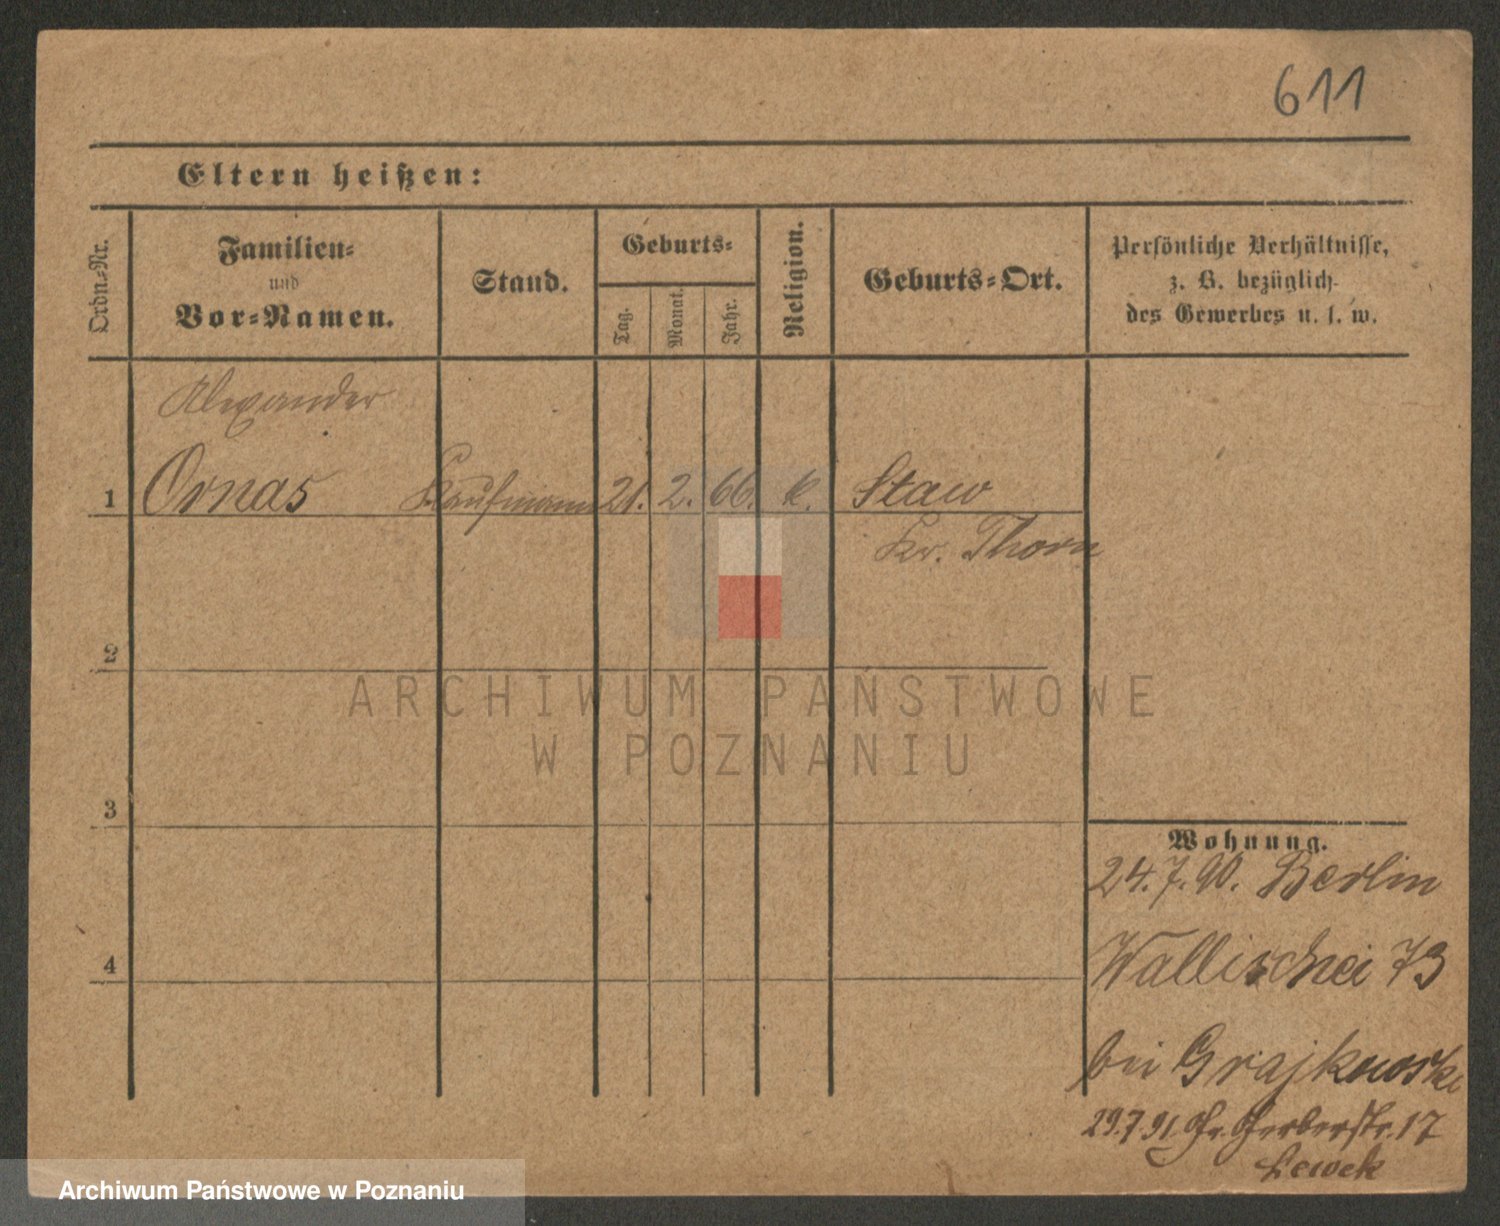 611
Eltern heißen:
Ordn.-Nr.
Familien-
und
Vor-Namen.
Stand.
Geburts-
Tag.
Monat.
Jahr.
Religion.
Geburts-Ort.
Persönliche Verhältnisse,
z. B. bezüglich
des Gewerbes u. s. w.
Alexander
1 Ornas Kaufmann 21. 2. 66. k. Staw
Kr. Thorn
2
ARCHIWUM PAŃSTWOWE
W POZNANIU
3
Wohnung.
24.7.90. Berlin
4
Wallischei 73
bei Grajkowski
29.7.91. Gr. Gerberstr. 17
Lewek
Archiwum Państwowe w Poznaniu